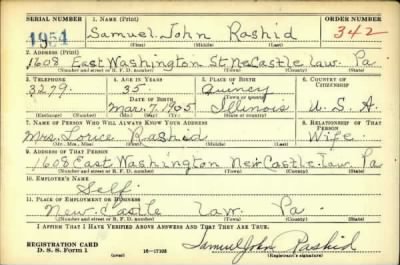 SERIAL NUMBER 1. NAME (Print) ORDER NUMBER
1954 Samuel John Rashid 342
(First) (Middle) (Last)
2. ADDRESS (Print)
1608 East Washington St. NewCastle Law. Pa.
(Number and street or R. F. D. number) (Town) (County) (State)
3. TELEPHONE 4. AGE IN YEARS 5. PLACE OF BIRTH 6. COUNTRY OF CITIZENSHIP
3279. 35 Quincy
DATE OF BIRTH (Town or county)
Mar. 7, 1905 Illinois U. S. A.
(Mo.) (Day) (Yr.) (State or country)
7. NAME OF PERSON WHO WILL ALWAYS KNOW YOUR ADDRESS 8. RELATIONSHIP OF THAT PERSON
Mrs. Lorice Rashid Wife
(Mr., Mrs., Miss) (First) (Middle) (Last)
9. ADDRESS OF THAT PERSON
1608 East Washington New Castle. Law. Pa
(Number and street or R. F. D. number) (Town) (County) (State)
10. EMPLOYER'S NAME
Self
11. PLACE OF EMPLOYMENT OR BUSINESS
New Castle Law. Pa.
(Number and street or R. F. D. number) (Town) (County) (State)
I AFFIRM THAT I HAVE VERIFIED ABOVE ANSWERS AND THAT THEY ARE TRUE.
REGISTRATION CARD
D. S. S. Form 1 16—17105 Samuel John Rashid
(over) (Registrant's signature)